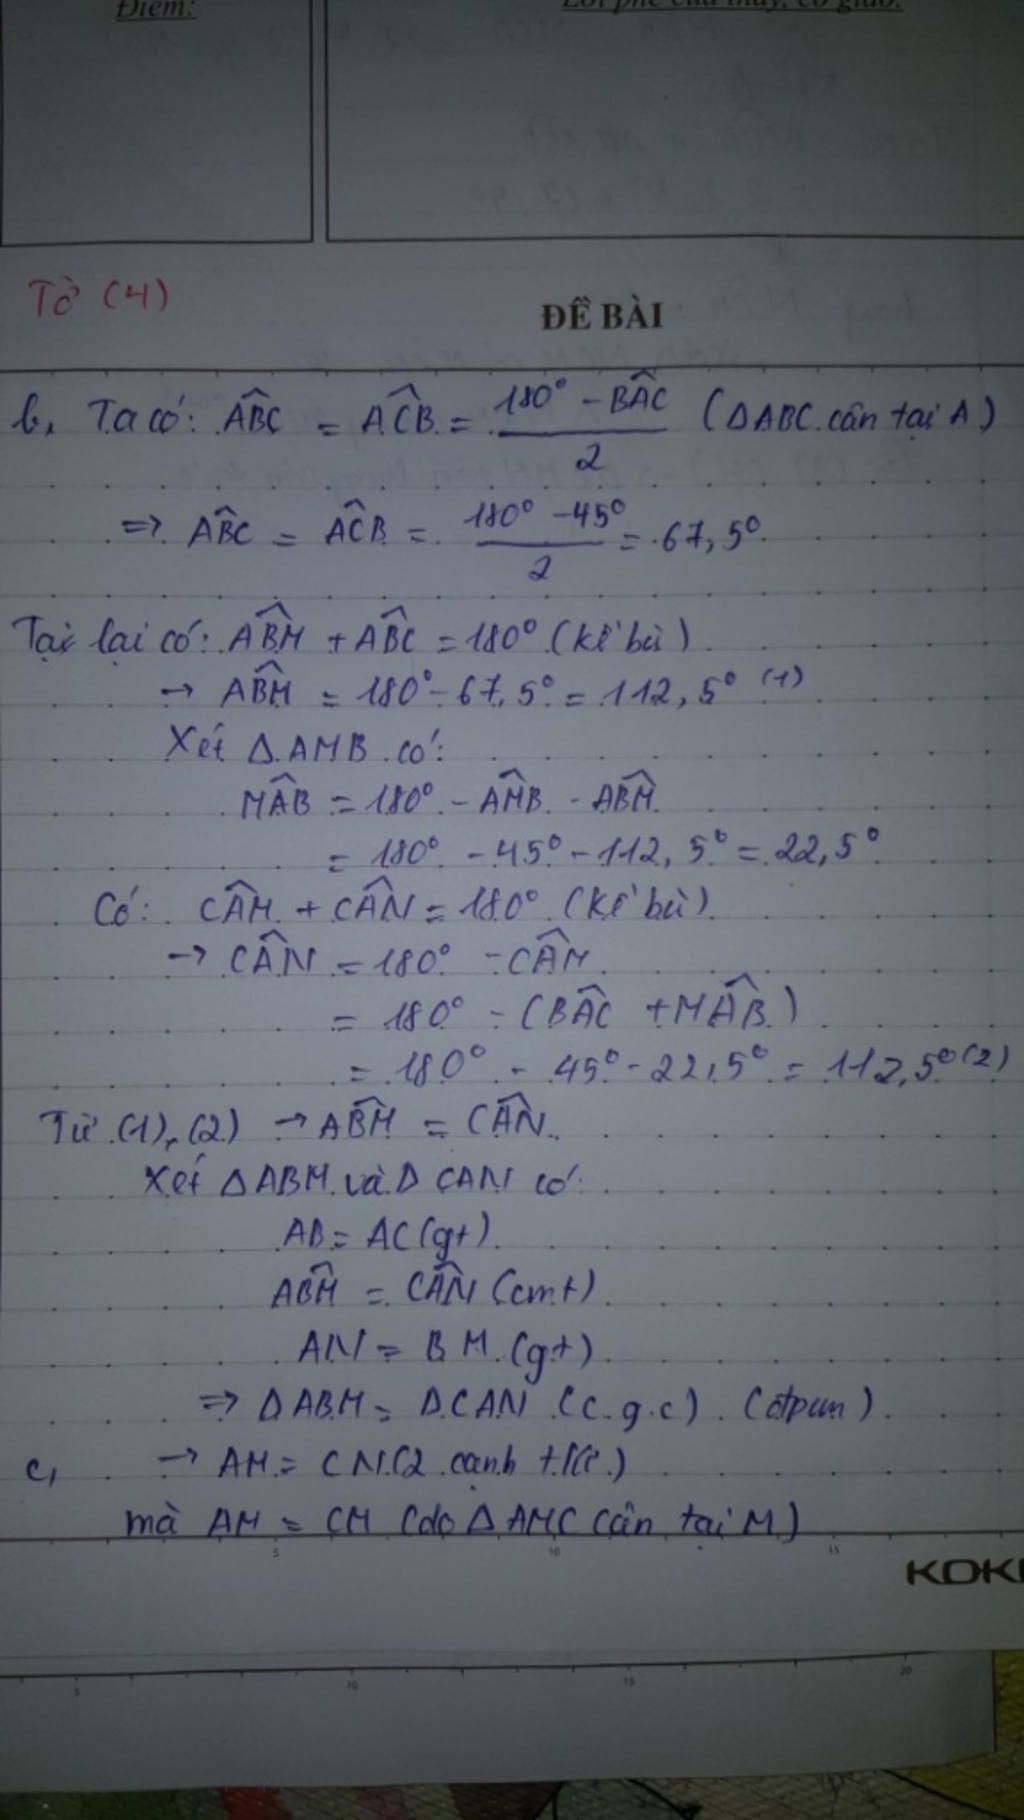 Điểm:
Lời phê của thầy, cô giáo:
Tờ (4)
ĐỀ BÀI
b, Ta có: ABC^ = ACB^ = (180° - BAC^)/2 (ΔABC cân tại A)
=> ABC^ = ACB^ = (180° - 45°)/2 = 67,5°
Tại lại có: ABM^ + ABC^ = 180° (kề bù)
→ ABM^ = 180° - 67,5° = 112,5° (1)
Xét ΔAMB có:
MAB^ = 180° - AMB^ - ABM^
= 180° - 45° - 112,5° = 22,5°
Có: CAM^ + CAN^ = 180° (kề bù)
→ CAN^ = 180° - CAM^
= 180° - (BAC^ + MAB^)
= 180° - 45° - 22,5° = 112,5° (2)
Từ (1), (2) → ABM^ = CAN^
Xét ΔABM và Δ CAN có:
AB = AC (gt)
ABM^ = CAN^ (cmt)
AN = BM (gt)
=> ΔABM = ΔCAN (c.g.c) (đpcm)
c, → AM = CN (2 cạnh t/ứ)
mà AM = CM (do ΔAMC cân tại M)
5 10 15
5 10 15 20